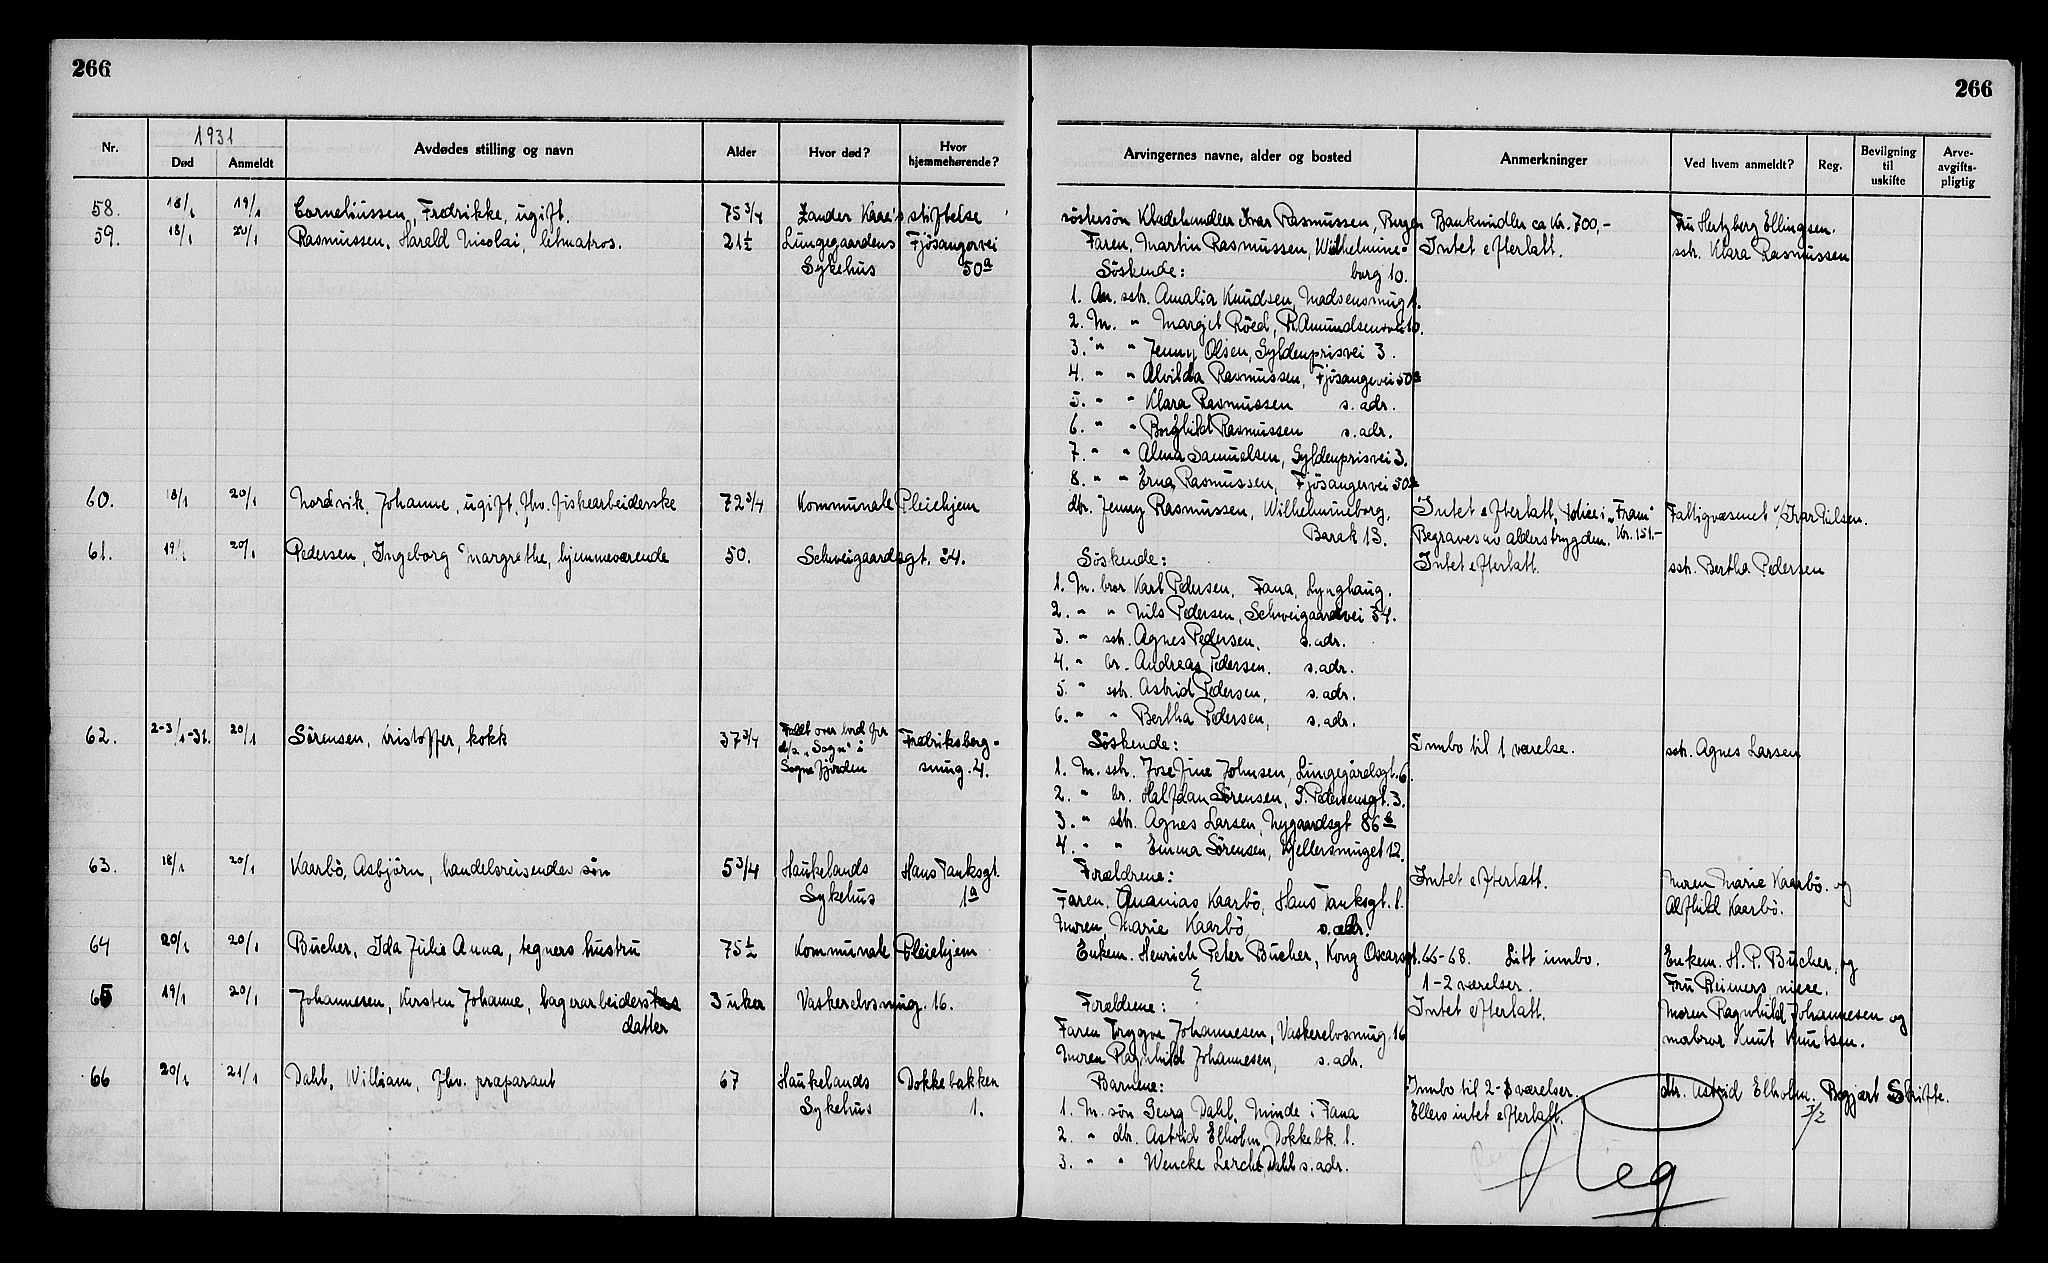 266
266
Nr.
1931
Død
Anmeldt
Avdødes stilling og navn
Alder
Hvor død?
Hvor hjemmehørende?
Arvingernes navne, alder og bosted
Anmerkninger
Ved hvem anmeldt?
Reg.
Bevilgning til uskifte
Arve-avgifts-pligtig
58. 18/1 19/1 Corneliussen, Fredrikke, ugift. 75 3/4 Zander Kaae's stiftelse
søstersøn Kladehandler Ivar Rasmussen, Bergen Bankmidler ca Kr. 700,- Fru Hertzberg Ellingsen.
59. 18/1 20/1 Rasmussen, Harald Nicolai, letmatros. 21 1/2 Lungegaardens Fjösangervei
Sykehus 50a
Faren, Martin Rasmussen, Wilhelmine- Intet efterlatt. sstr. Klara Rasmussen
Söskende: borg 10.
1. M. sstr. Amalia Knudsen, Madsensmug 1.
2. M. " Margit Röed, R. Amundsensvei 10.
3. " " Jenny Olsen, Gyldenprisvei 3.
4. " " Alvilda Rasmussen, Fjösangervei 50a
5. " " Klara Rasmussen s. adr.
6. " " Borghild Rasmussen s. adr.
7. " " Alma Samuelsen, Gyldenprisvei 3.
8. " " Erna Rasmussen, Fjösangervei 50a
60. 18/1 20/1 Nordvik, Johanne, ugift, fhv. fiskearbeiderske 72 3/4 Kommunale Pleiehjem
dtr. Jenny Rasmussen, Wilhelmineborg, Intet efterlatt, police i "Fram" Fattigvæsenet v/Ivar Nilsen.
Barak 13. Begraves av alderstrygden. Kr. 151.-
61. 19/1 20/1 Pedersen, Ingeborg Margrethe, hjemmeværende 50. Schweigaardsgt. 34.
Söskende: Intet efterlatt. sstr. Bertha Pedersen
1. M. bror Karl Pedersen, Fana, Lynghaug.
2. " " Nils Pedersen, Schweigaardsvei 34.
3. " sstr. Agnes Pedersen, s. adr.
4. " br. Andreas Pedersen. s. adr.
5. " sstr. Astrid Pedersen, s. adr.
6. " " Bertha Pedersen, s. adr.
62. 2-3/1-31. 20/1 Sörensen, Kristoffer, kokk 37 3/4 Faldt over bord fra Fredriksberg-
d/s "Sogn" i
Sognefjorden smug. 4.
Söskende: Innbo til 1 værelse. sstr. Agnes Larsen
1. M. sstr. Josefine Johnsen, Lungegårdsgt. 6.
2. " br. Halfdan Sörensen, G. Pedersensgt. 3.
3. " sstr. Agnes Larsen, Nygaardsgt 86
4. " " Emma Sörensen, Kjellersmuget 12.
63. 18/1 20/1 Kaarbö, Asbjörn, handelsreisendes sön 5 3/4 Haukelands Hans Tanksgt.
Sykehus 1a
Foreldrene: Intet efterlatt. Moren Marie Kaarbö. og
Faren, Ananias Kaarbö, Hans Tanksgt. 1. Alfhild Kaarbö.
Moren, Marie Kaarbö, s. adr.
64 20/1 20/1 Bucher, Ida Julie Anna, tegners hustru 75 1/2 Kommunale Pleiehjem
Enkem. Henrich Peter Bucher, Kong Oscarsgt. 66-68. Litt innbo. Enkem. H. P. Bucher og
1-2 værelser. Fru Reimers niese.
65 19/1 20/1 Johannesen, Kirsten Johanne, lagerarbeiders 3 uker Vaskerelvsmug. 16.
datter
Foreldrene: Intet efterlatt. Moren Ragnhild Johannesen og
Faren Tryggve Johannesen, Vaskerelvsmug. 16 morbror Knut Knutsen.
Moren Ragnhild Johannesen, s. adr.
66 20/1 21/1 Dahl, William, fhv. præparant 67 Haukelands Dokkebakken
Sykehus 1.
Barnene: Innbo til 2-3 værelser. dtr. Astrid Elholm. Begjært Skifte.
1. M. sön Georg Dahl, Minde i Fana Ellers intet efterlatt. 7/2
2. " dtr. Astrid Elholm, Dokkebk. 1.
3. " " Wencke Lerche Dahl s. adr.
Reg